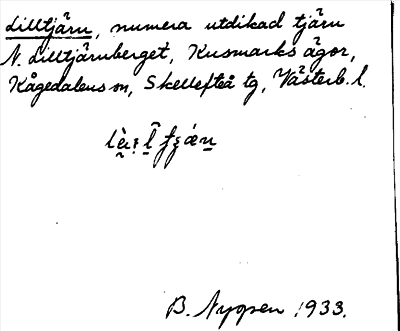 Lilltjärn, numera utdikad tjärn
N. Lilltjärnberget, Kusmarks ägor,
Kågedalens sn, Skellefteå tg, Västerb. l.
B. Nygren 1933.